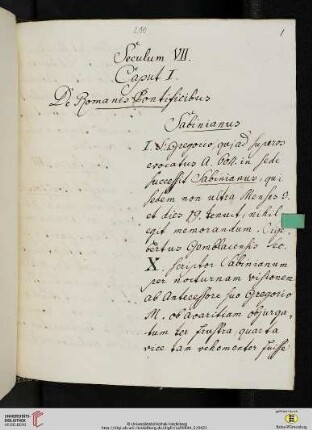 210
1
Seculum VII.
Caput I.
De Romanis Pontificibus
Sabinianus
I. S. Gregorio, qui ad superos
evocatus A. 604. in sede
successit Sabinianus, qui
sedem non ultra Menses 5.
et dies 19. tenuit, nihil
egit memorandum. Sige
bertus Gemblacensis Sec.
X. scriptor Sabinianum
per nocturnam visionem
ab Antecessore suo Gregorio
M. ob Avaritiam objurga-
tum ter frustra, quarta
vice tam vehementer fuisse
UNIVERSITÄTS-
BIBLIOTHEK
HEIDELBERG
© Universitätsbibliothek Heidelberg